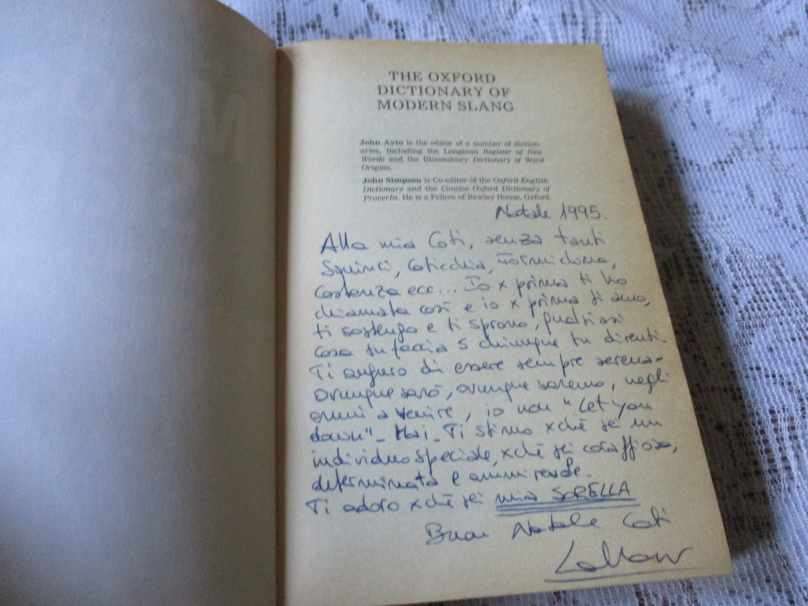 THE OXFORD
DICTIONARY OF
MODERN SLANG
John Ayto is the editor of a number of diction-
aries, including the Longman Register of New
Words and the Bloomsbury Dictionary of Word
Origins.
John Simpson is Co-editor of the Oxford English
Dictionary and the Concise Oxford Dictionary of
Proverbs. He is a Fellow of Rewley House, Oxford
Natale 1995.
Alla mia Coti, senza tanti
Squinci, Coticchia, Formichina,
Costanza ecc... Io x prima ti ho
chiamata così e io x prima ti amo,
ti sostengo e ti sprono, qualsiasi
cosa tu faccia e chiunque tu diventi.
Ti auguro di essere sempre serena.
Ovunque sarò, ovunque saremo, negli
anni a venire, io non "let you
down" - Mai. Ti stimo xchè sei un
individuo speciale, xchè sei coraggiosa,
determinata e
Ti adoro xchè sei mia SORELLA
Buon Natale Coti